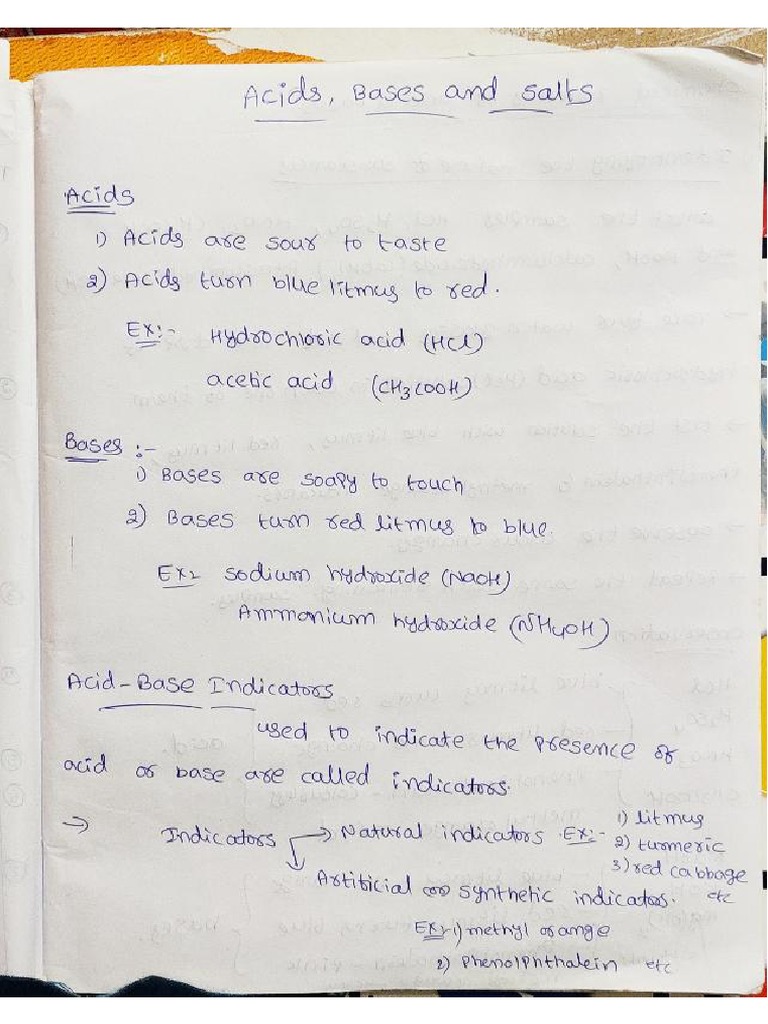 Acids, Bases and Salts
Acids
1) Acids are sour to taste
2) Acids turn blue litmus to red.
Ex:- Hydrochloric acid (HCl)
acetic acid (CH3COOH)
Bases :-
1) Bases are soapy to touch
2) Bases turn red litmus to blue.
Ex:- sodium hydroxide (NaOH)
Ammonium hydroxide (NH4OH)
Acid-Base Indicators
used to indicate the presence of
acid or base are called indicators.
→ Indicators → Natural indicators. Ex:- 1) litmus
2) turmeric
3) red cabbage
etc
Artificial or synthetic indicators.
Ex:- 1) methyl orange
2) Phenolphthalein etc